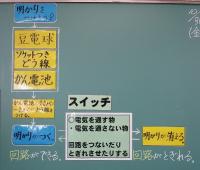 明かりを
豆電球
ソケットつき
どう線
かん電池
スイッチ
○電気を通す物
・電気を通さない物
回路をつないだり
とぎれさせたりする
明かりがつく。
明かりが消える。
回路ができる。
回路がとぎれる。